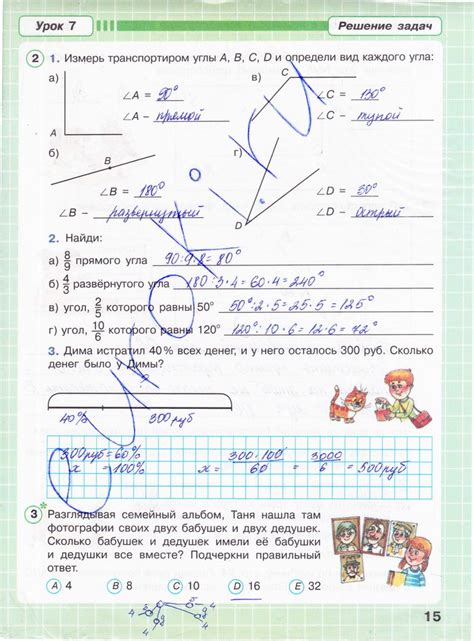 Урок 7
Решение задач
2 1. Измерь транспортиром углы A, B, C, D и определи вид каждого угла:
а) ∠A = 90°
∠A – прямой
A
в) C ∠C = 130°
∠C – тупой
б) B
∠B = 180°
∠B – развернутый
г) D ∠D = 30°
∠D – острый
2. Найди:
а) 8/9 прямого угла 90:9·8=80°
б) 4/3 развёрнутого угла 180:3·4=60·4=240°
в) угол, 2/5 которого равны 50° 50°:2·5=25·5=125°
г) угол, 10/6 которого равны 120° 120°:10·6=12·6=72°
3. Дима истратил 40% всех денег, и у него осталось 300 руб. Сколько
денег было у Димы?
?
40% 300руб
300руб=60%
x = 100%
x = 300·100/60 = 3000/6 = 500руб
3 Разглядывая семейный альбом, Таня нашла там
фотографии своих двух бабушек и двух дедушек.
Сколько бабушек и дедушек имели её бабушки
и дедушки все вместе? Подчеркни правильный
ответ.
A 4 B 8 C 10 D 16 E 32
4 4 4
15